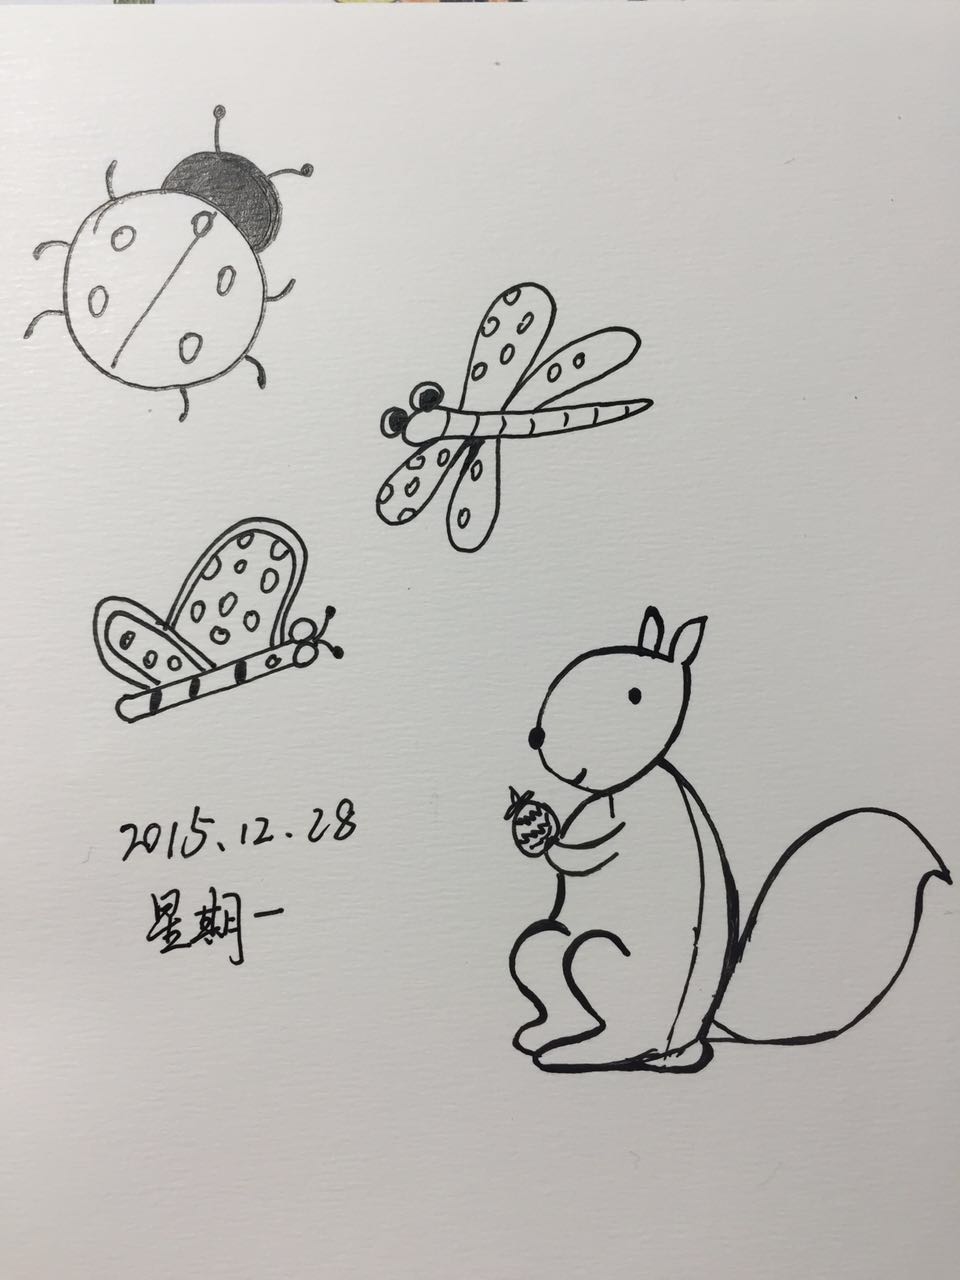 2015.12.28
星期一